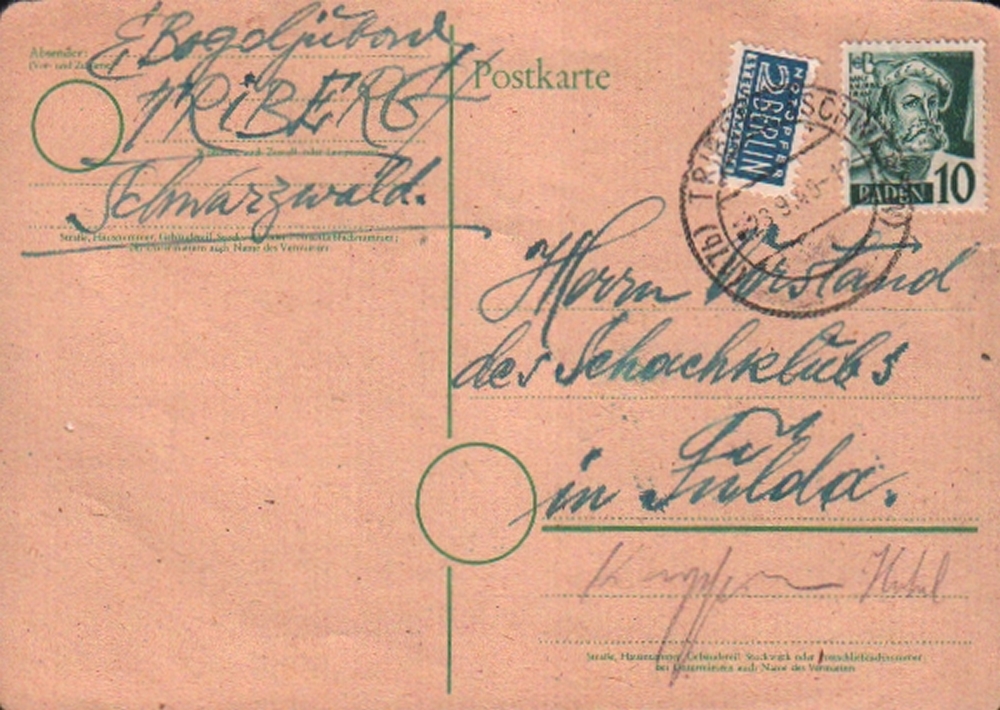 Absender:
E Bogoljubow
TRIBERG
Schwarzwald.
Straße, Hausnummer, Gebäudeteil, Stockwerk oder Postschließfachnummer;
bei Untermietern auch Name des Vermieters
Postkarte
NOTOPFER
2 BERLIN
STEUERMARKE
BADEN 10
TRIBERG SCHWARZW
(17b)
Herrn Vorstand
des Schachklubs
in Fulda.
Hotel
Straße, Hausnummer, Gebäudeteil, Stockwerk oder Postschließfachnummer;
bei Untermietern auch Name des Vermieters